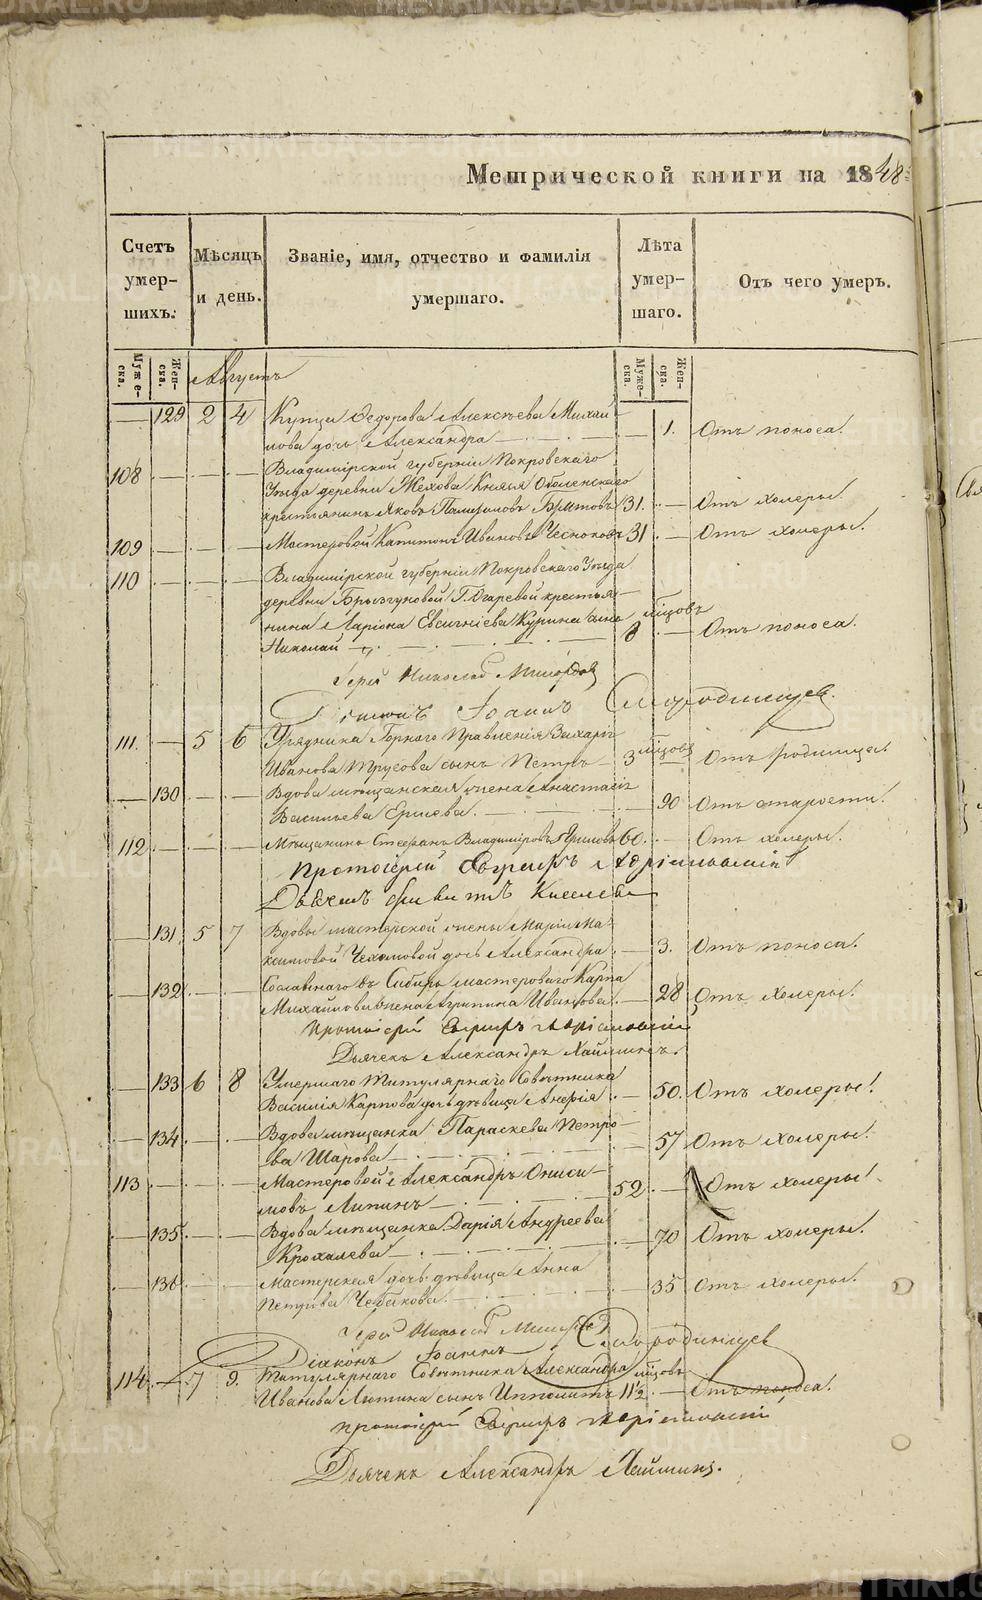 Метрической книги на 1848
Счетъ умершихъ.
Мѣсяцъ и день.
Званіе, имя, отчество и фамилія умершаго.
Лѣта умершаго.
Отъ чего умеръ.
Мужеска. Женска.
Августъ
Мужеска. Женска.
129 2 4 Купца Ѳедорова Алексѣева Михай
лова дочь Александра 1. Отъ поноса.
108 Владимірской губерніи Покровскаго
Уѣзда деревни Жехова Князя Оболенскаго
крестьянинъ Яковъ 31. Отъ холеры.
109 Мастеровой Капитонъ Ивановъ Чесноковъ 31 Отъ холеры.
110 Владимірской губерніи Покровскаго Уѣзда
деревни Брызгуновой Г. Огаревой крестья
нина Ларіона Евсигніева Курина сынъ мѣсяцовъ
Николай 8 Отъ поноса.
Іерей Николай
Діаконъ Іоаннъ Смородинцев.
111. 5 6 Урядника Горнаго Правленія Захара
Иванова Трусова сынъ Петръ 3 мѣсяцов Отъ родимца.
130 Вдова мѣщанская жена Анастасія
Васильева 90 Отъ старости.
112 Мѣщанинъ Стефанъ Владиміровъ 60. Отъ холеры.
Протоіерей
Дьячекъ Киселевъ
131. 5 7 Вдовы мастерской жены Маріи Ма
ксимовой Чехомовой дочь Александра 3. Отъ поноса.
132 Сосланнаго въ Сибирь мастероваго Карпа
Михайлова жена Агрипина Иванова. 28 Отъ холеры.
Протоіерей
Дьячекъ Александръ
133 6 8 Умершаго Титулярнаго Совѣтника
Василія Карпова дочь дѣвица 50. Отъ холеры.
134 Вдова мѣщанка Параскева Петро
ва Шарова 57 Отъ холеры.
113 Мастеровой Александръ Ониси
мовъ Липинъ 52 Отъ холеры.
135 Вдова мѣщанка Дарія Андреева
Крохалева 70 Отъ холеры.
136 Мастерская дочь дѣвица Анна
Петрова Чебакова. 35 Отъ холеры.
Іерей Николай
Діаконъ Іоаннъ Смородинцев
114 7 9. Титулярнаго Совѣтника Александра мѣсяцовъ
Иванова Литина сынъ Ипполитъ 11 1/2 Отъ поноса.
Протоіерей
Дьячекъ Александръ
METRIKI.GASO-URAL.RU